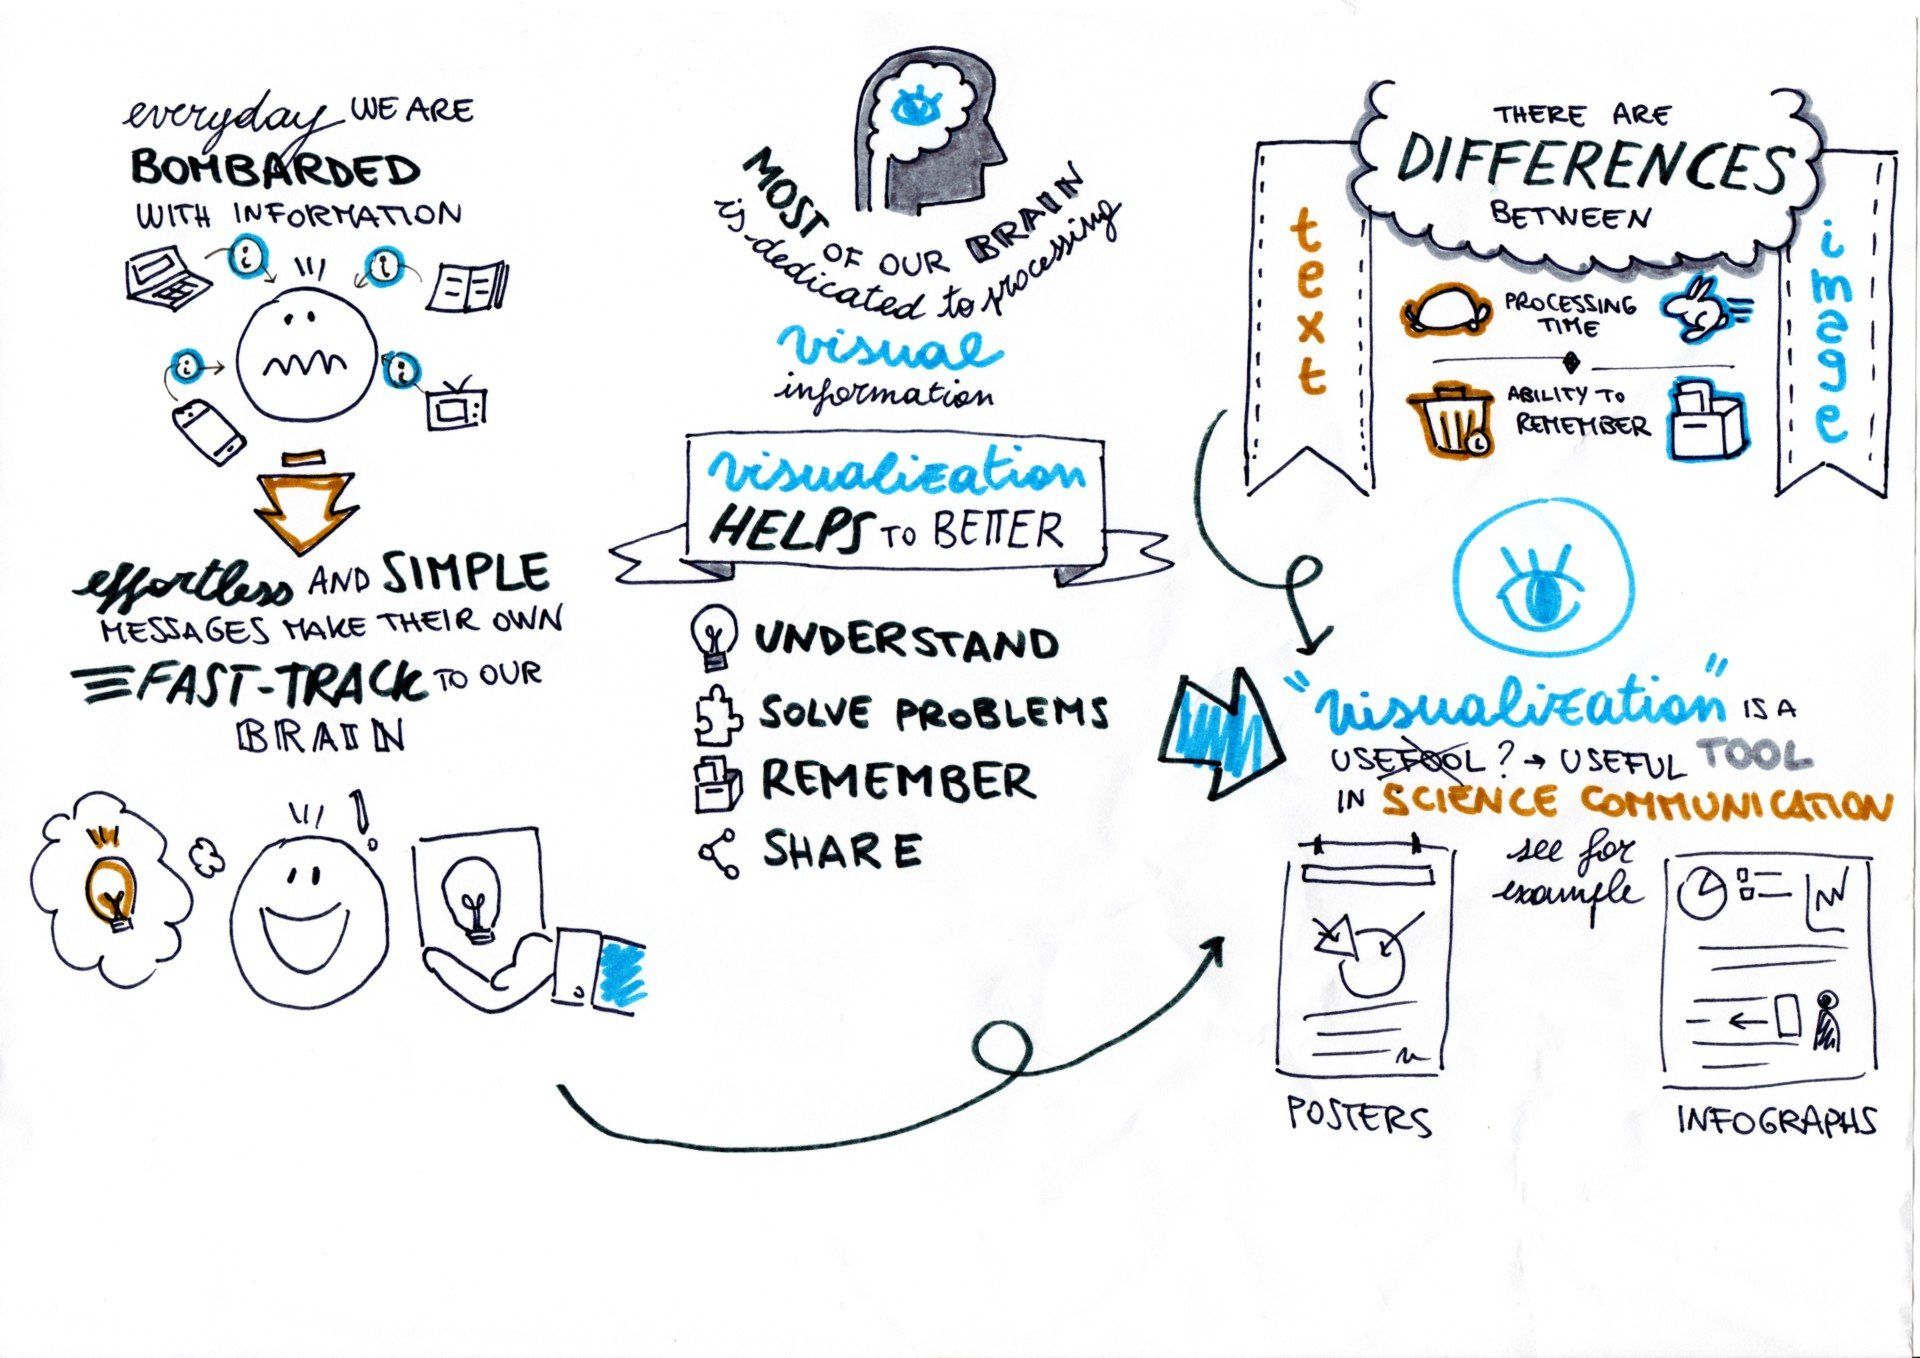 everyday WE ARE
BOMBARDED
WITH INFORMATION
i
i
i
i
effortless AND SIMPLE
MESSAGES MAKE THEIR OWN
FAST-TRACK TO OUR
BRAIN
!
MOST OF OUR BRAIN
is dedicated to processing
visual
information
visualization
HELPS TO BETTER
UNDERSTAND
SOLVE PROBLEMS
REMEMBER
SHARE
THERE ARE
DIFFERENCES
BETWEEN
text
image
PROCESSING
TIME
ABILITY TO
REMEMBER
"visualization" IS A
USEFOOL? → USEFUL TOOL
IN SCIENCE COMMUNICATION
see for
example
POSTERS
INFOGRAPHS